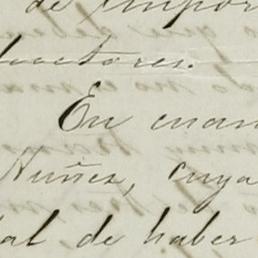 de impor
ductores.
En cuan
Nuñez, cuya
al de haber